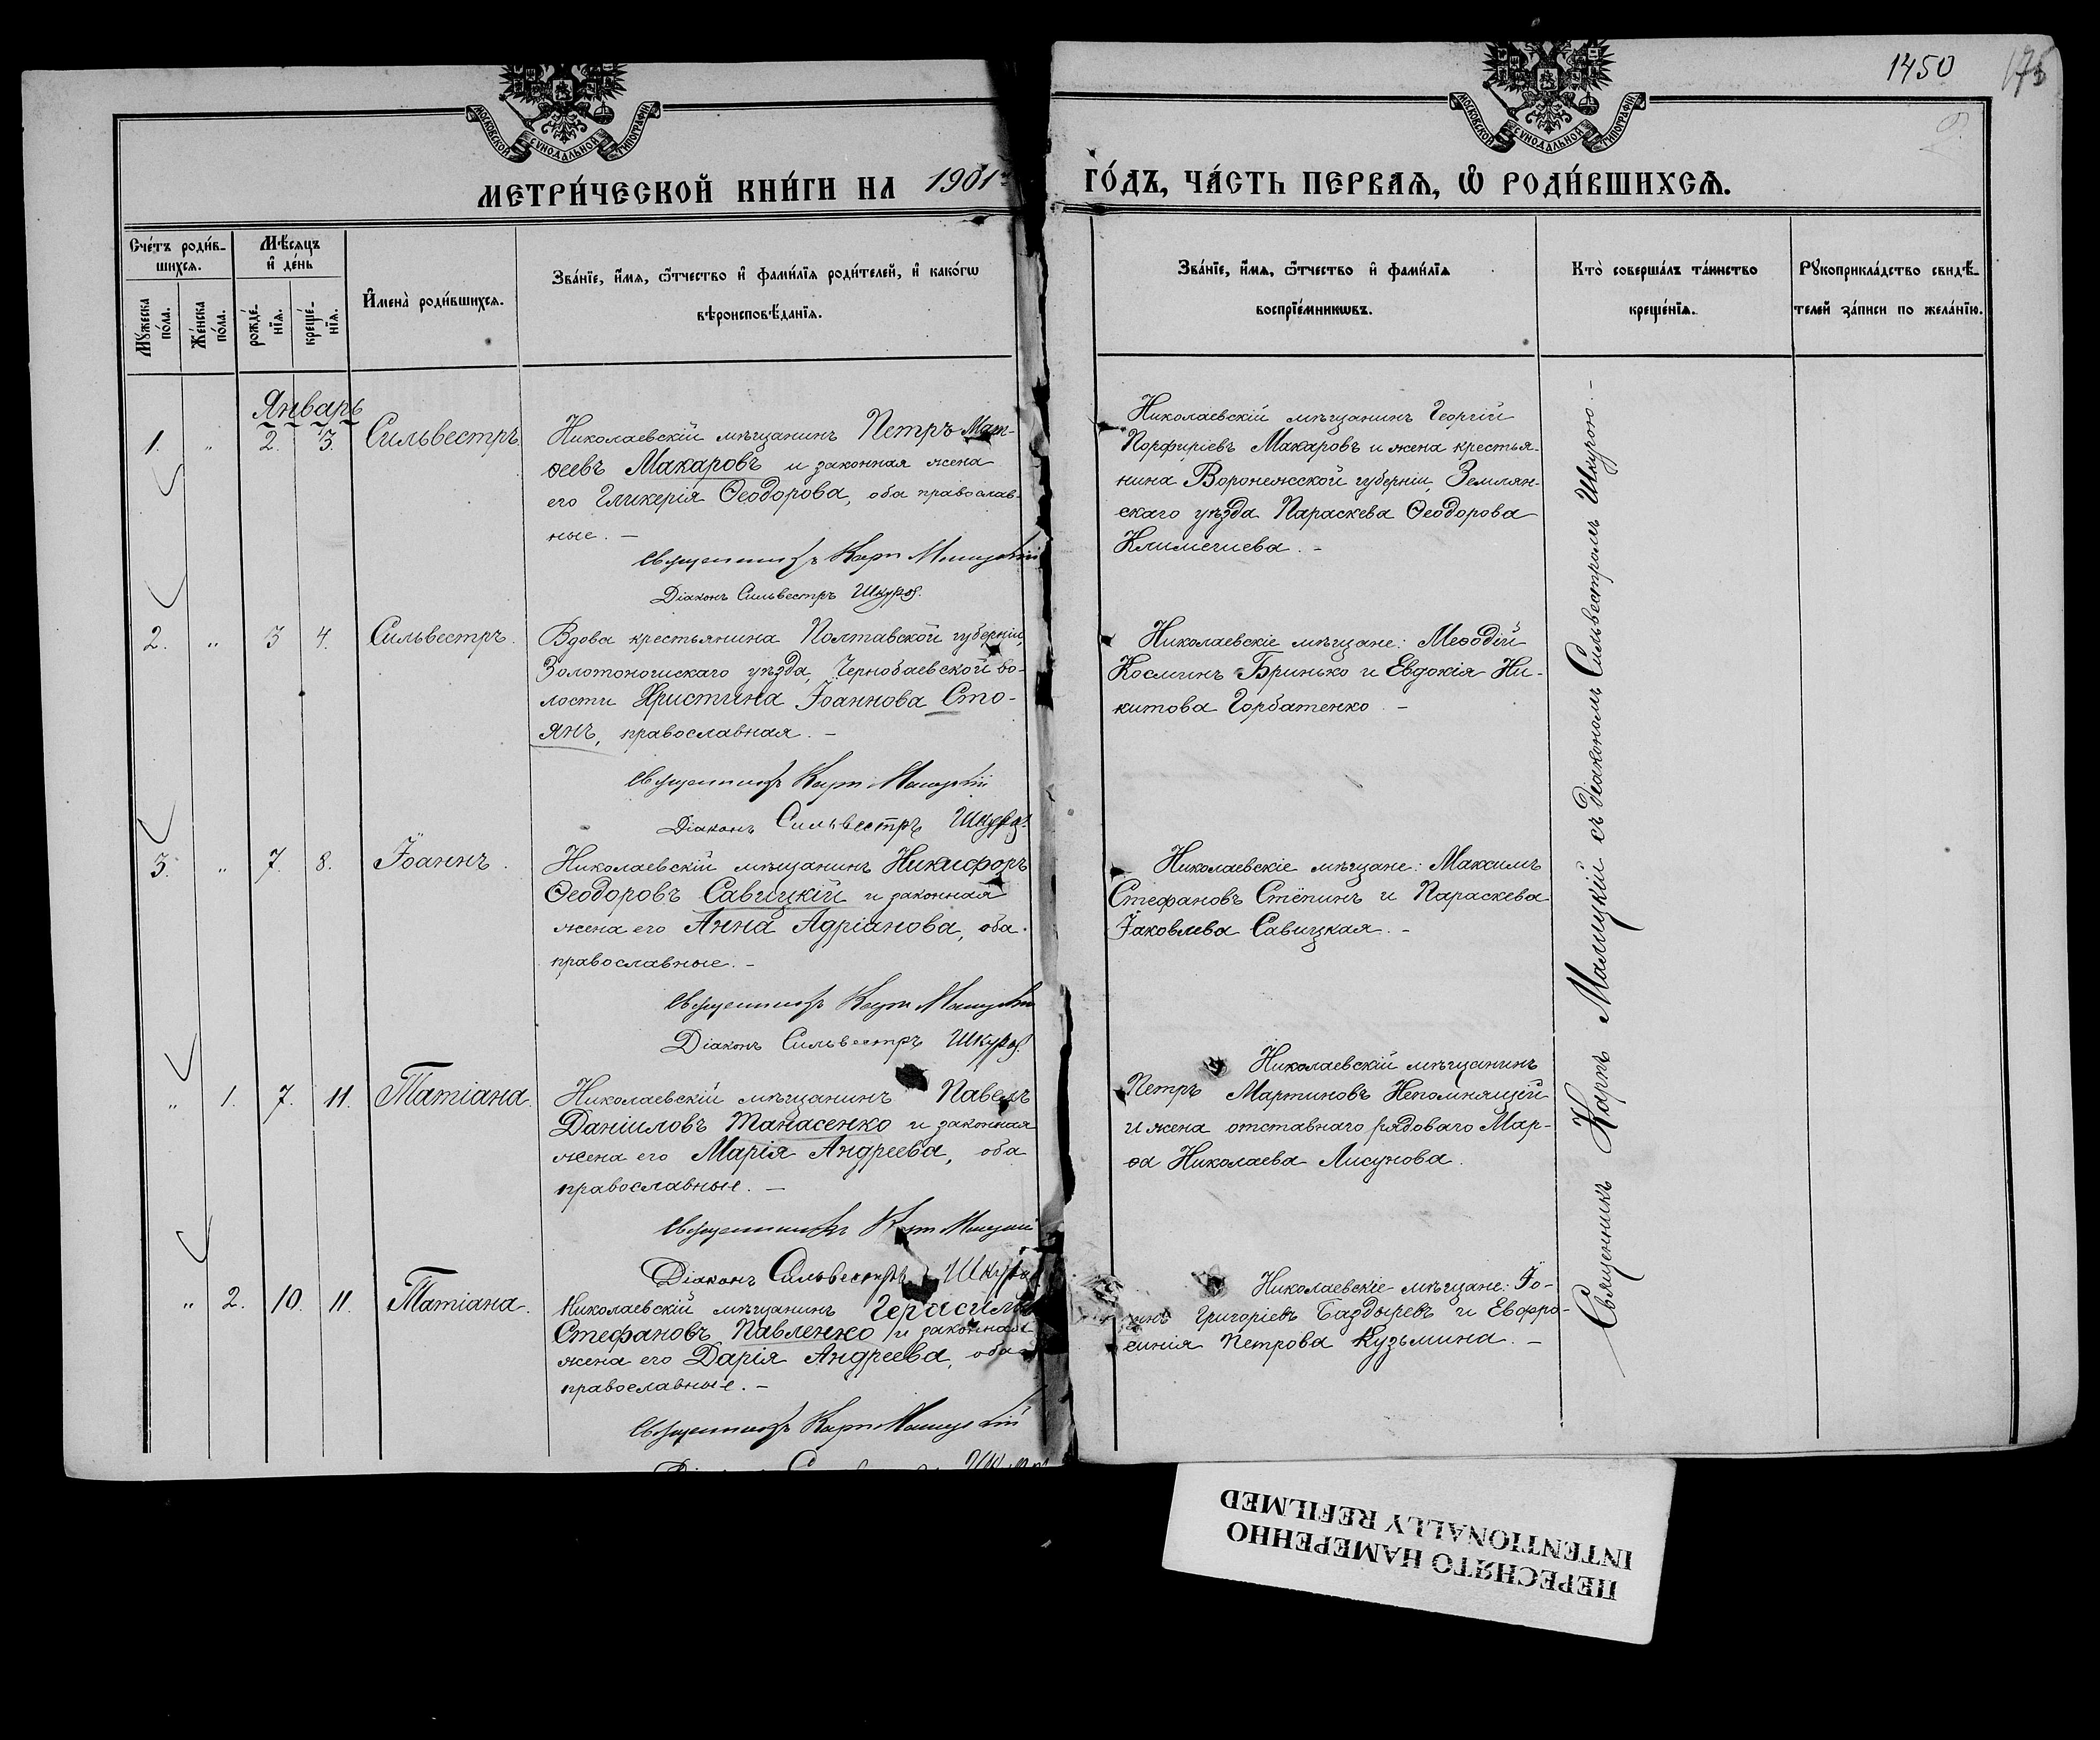 1450
175
МОСКОВСКОЙ СѴНОДАЛЬНОЙ ТИПОГРАФІИ
МОСКОВСКОЙ СѴНОДАЛЬНОЙ ТИПОГРАФІИ
МЕТРИ́ЧЕСКОЙ КНИ́ГИ НА 1901
ГО́ДЪ, ЧА́СТЬ ПЕРВАѦ, Ѽ РОДИ́ВШИХСѦ.
Сче́тъ роди́в-
шихсѧ.
Мꙋ́жеска по́ла.
Же́нска по́ла.
Мѣ́сѧцъ
и҆ де́нь
рожде́-
нїѧ.
креще́-
нїѧ.
И҆мена̀ роди́вшихсѧ.
Зва́нїе, и҆́мѧ, ѻ҆́тчество и҆ фами́лїѧ роди́телей, и҆ како́гѡ
вѣроисповѣ́данїѧ.
Зва́нїе, и҆́мѧ, ѻ҆́тчество и҆ фами́лїѧ
воспрїе́мникѡвъ.
Кто̀ соверша́лъ та́инство
креще́нїѧ.
Рꙋкоприкла́дство свидѣ́-
телей за́писи по жела́нїю.
Январь
1. " 2. 3. Сильвестръ
Николаевскій мѣщанинъ Петръ Мат-
ѳеевъ Макаровъ и законная жена
его Гликерія Ѳеодорова, оба православ-
ные. —
Священникъ Карп Малицкій
Діаконъ Сильвестръ Шкура.
Николаевскій мѣщанинъ Георгій
Порфиріевъ Макаровъ и жена крестья-
нина Воронежской губерніи, Землян-
скаго уѣзда Параскева Ѳеодорова
2. " 3 4. Сильвестръ.
Вдова крестьянина Полтавской губерніи,
Золотоношскаго уѣзда, Чернобаевской во-
лости Христина Іоаннова Сто-
янъ, православная. —
Священникъ Карп Малицкій
Діаконъ Сильвестръ Шкура.
Николаевскіе мѣщане: Меѳодій
Косминъ Бринько и Евдокія Ни-
китова Горбатенко. —
3. " 7. 8. Іоаннъ.
Николаевскій мѣщанинъ Никифоръ
Ѳеодоровъ Савицкій и законная
жена его Анна Адріанова, оба
православные. —
Священникъ Карп Малицкій
Діаконъ Сильвестръ Шкура.
Николаевскіе мѣщане: Максимъ
Стефановъ Стёпинъ и Параскева
Іаковлева Савицкая. —
" 1. 7. 11. Татіана.
Николаевскій мѣщанинъ Павелъ
Даніиловъ Танасенко и законная
жена его Марія Андреева, оба
православные. —
Священникъ Карп Малицкій
Діаконъ Сильвестръ Шкура.
Николаевскій мѣщанинъ
Петръ Мартиновъ Непомнящей
и жена отставнаго рядоваго Мар-
ѳа Николаева Лисунова.
" 2. 10. 11. Татіана.
Николаевскій мѣщанинъ Герасимъ
Стефановъ Павленко и законная
жена его Дарія Андреева, оба
православные. —
Священникъ Карп Малицкій
Николаевскіе мѣщане: Іо-
Григоріевъ Баздыревъ и Евфро-
синія Петрова Кузьмина. —
Священникъ Карпъ Малицкій съ діакономъ Сильвестромъ Шкурою. —
ПЕРЕСНЯТО НАМЕРЕННО
INTENTIONALLY REFILMED